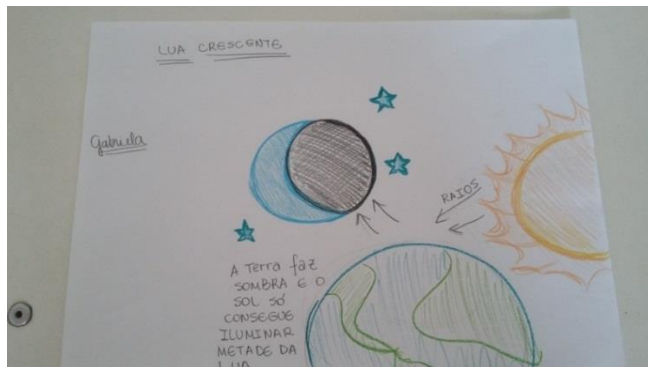 LUA CRESCENTE
Gabriela
RAIOS
A Terra faz
SOMBRA E O
SOL SÓ
CONSEGUE
ILUMINAR
METADE DA
LUA